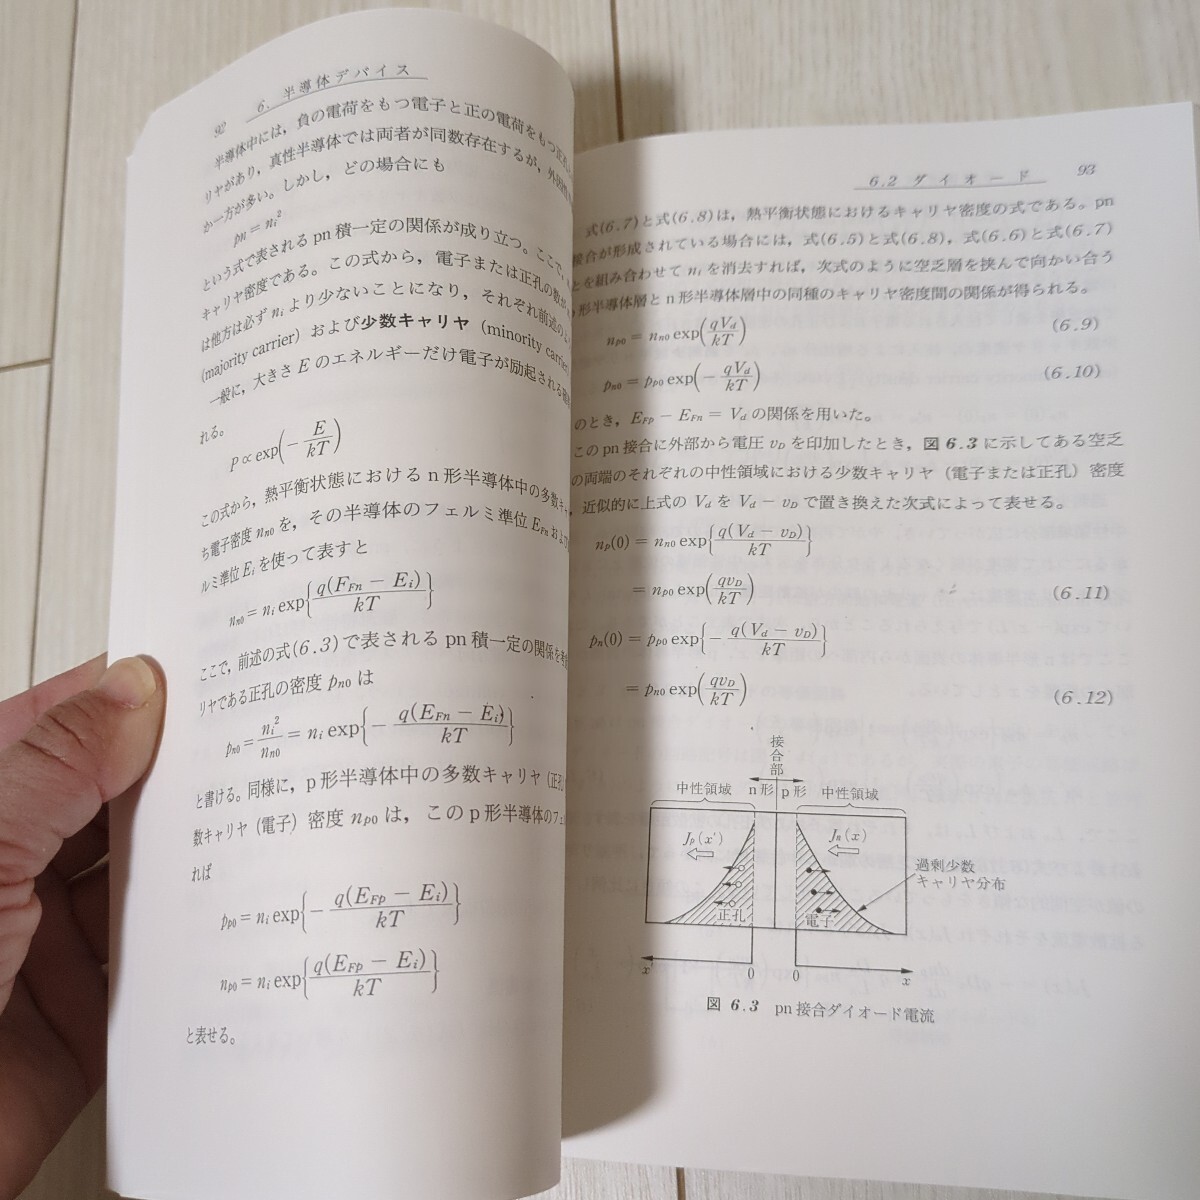 92　6. 半導体デバイス
半導体中には，負の電荷をもつ電子と正の電荷をもつ正孔
リヤがあり，真性半導体では両者が同数存在するが，
か一方が多い。しかし，どの場合にも
pn = n_i^2
という式で表されるpn積一定の関係が成り立つ。ここで，
キャリヤ密度である。この式から，電子または正孔の数が
は他方は必ず n_i より少ないことになり，それぞれ前述の
(majority carrier) および少数キャリヤ (minority carrier)
一般に，大きさ E のエネルギーだけ電子が励起される
れる。
p ∝ exp(− E/kT)
この式から，熱平衡状態における n 形半導体中の多数キャ
ち電子密度 n_n0 を，その半導体のフェルミ準位 E_Fn および
ルミ準位 E_i を使って表すと
n_n0 = n_i exp{q(F_Fn − E_i)/kT}
ここで，前述の式(6.3)で表される pn 積一定の関係を
リヤである正孔の密度 p_n0 は
p_n0 = n_i^2/n_n0 = n_i exp{− q(E_Fn − E_i)/kT}
と書ける。同様に，p 形半導体中の多数キャリヤ (正孔)
数キャリヤ (電子) 密度 n_p0 は，この p 形半導体のフェ
れば
p_p0 = n_i exp{− q(E_Fp − E_i)/kT}
n_p0 = n_i exp{q(E_Fp − E_i)/kT}
と表せる。
6.2 ダイオード　93
式(6.7)と式(6.8)は，熱平衡状態におけるキャリヤ密度の式である。pn
接合が形成されている場合には，式(6.5)と式(6.8)，式(6.6)と式(6.7)
とを組み合わせて n_i を消去すれば，次式のように空乏層を挟んで向かい合う
形半導体層と n 形半導体層中の同種のキャリヤ密度間の関係が得られる。
n_p0 = n_n0 exp(qV_d/kT)　(6.9)
p_n0 = p_p0 exp(− qV_d/kT)　(6.10)
のとき，E_Fp − E_Fn = V_d の関係を用いた。
このpn接合に外部から電圧 v_D を印加したとき，図 6.3 に示してある空乏
の両端のそれぞれの中性領域における少数キャリヤ (電子または正孔) 密度
近似的に上式の V_d を V_d − v_D で置き換えた次式によって表せる。
n_p(0) = n_n0 exp{q(V_d − v_D)/kT}
= n_p0 exp(qv_D/kT)　(6.11)
p_n(0) = p_p0 exp{− q(V_d − v_D)/kT}
= p_n0 exp(qv_D/kT)　(6.12)
接合部
中性領域　n 形　p 形　中性領域
J_p(x′)　J_n(x)
過剰少数
キャリヤ分布
正孔　電子
x　0　0　x
図 6.3　pn 接合ダイオード電流